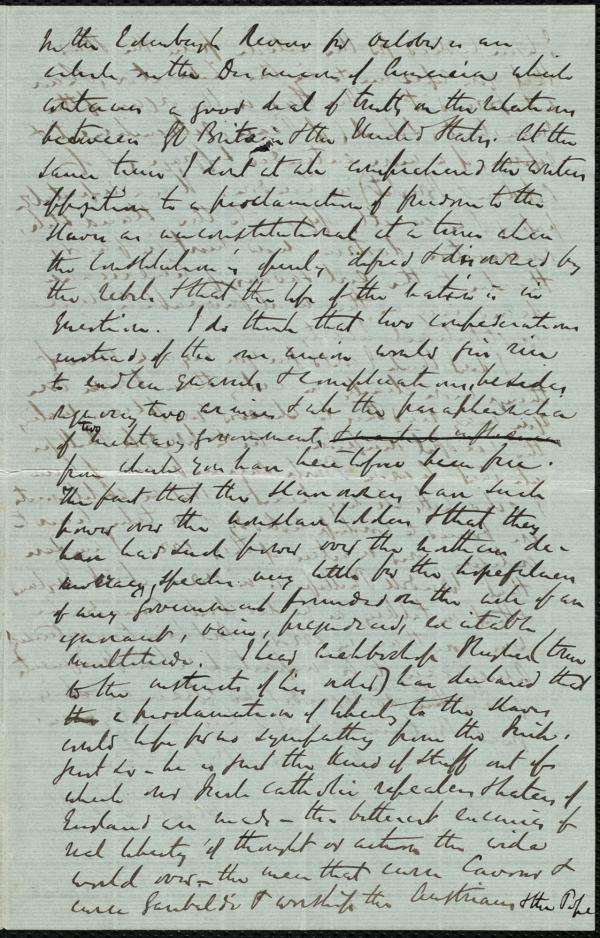 In the Edinburgh Review for October is an
article on the Disunion of America which
contains a good deal of truth on the relations
between Gt Britain & the United States. At the
same time I dont at all comprehend the writers
opposition to a proclamation of freedom to the
slaves as unconstitutional at a time when
the Constitution is openly defied & disowned by
the rebels & that the life of the nation is in
question. I do think that two confederations
instead of the one union would give rise
to endless quarrels & complications, besides
requiring two armies & all the paraphernalia
of two military governments
from which you have heretofore been free.
The fact that the slaveowners have such
power over the nonslaveholders & that they
have had such power over the northern de-
mocracy, speaks very little for the hopefulness
of any government founded on the will of an
ignorant, vain, prejudiced, excitable
multitude. I hear Archbishop Hughes (true
to the instincts of his order) has declared that
a proclamation of liberty to the slaves
could hope for no sympathy from the Irish.
Just so – he is just the kind of stuff out of
which our Irish Catholic repealers & haters of
England are made – the bitterest enemies of
real liberty of thought or action the wide
world over – the men that curse Cavour &
curse Garibaldi & worship the Austrians & the Pope